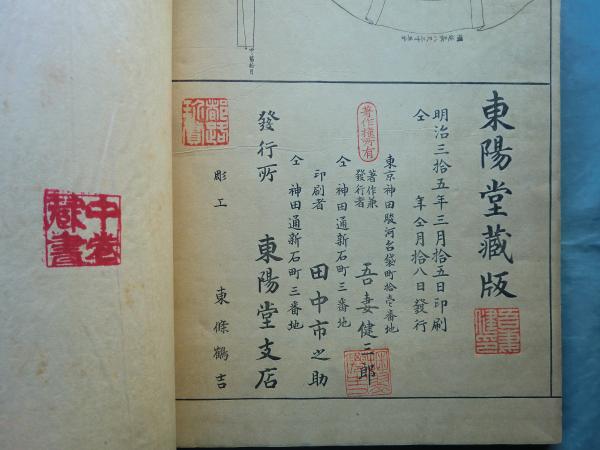 東陽堂藏版
明治三拾五年三月拾五日印刷
仝 年仝月拾八日發行
著作権所有
東京神田駿河台袋町拾壱番地
著作兼
發行者 吾妻健三郎
仝 神田通新石町三番地
印刷者 田中市之助
仝 神田通新石町三番地
發行所 東陽堂支店
彫工 東條鶴吉